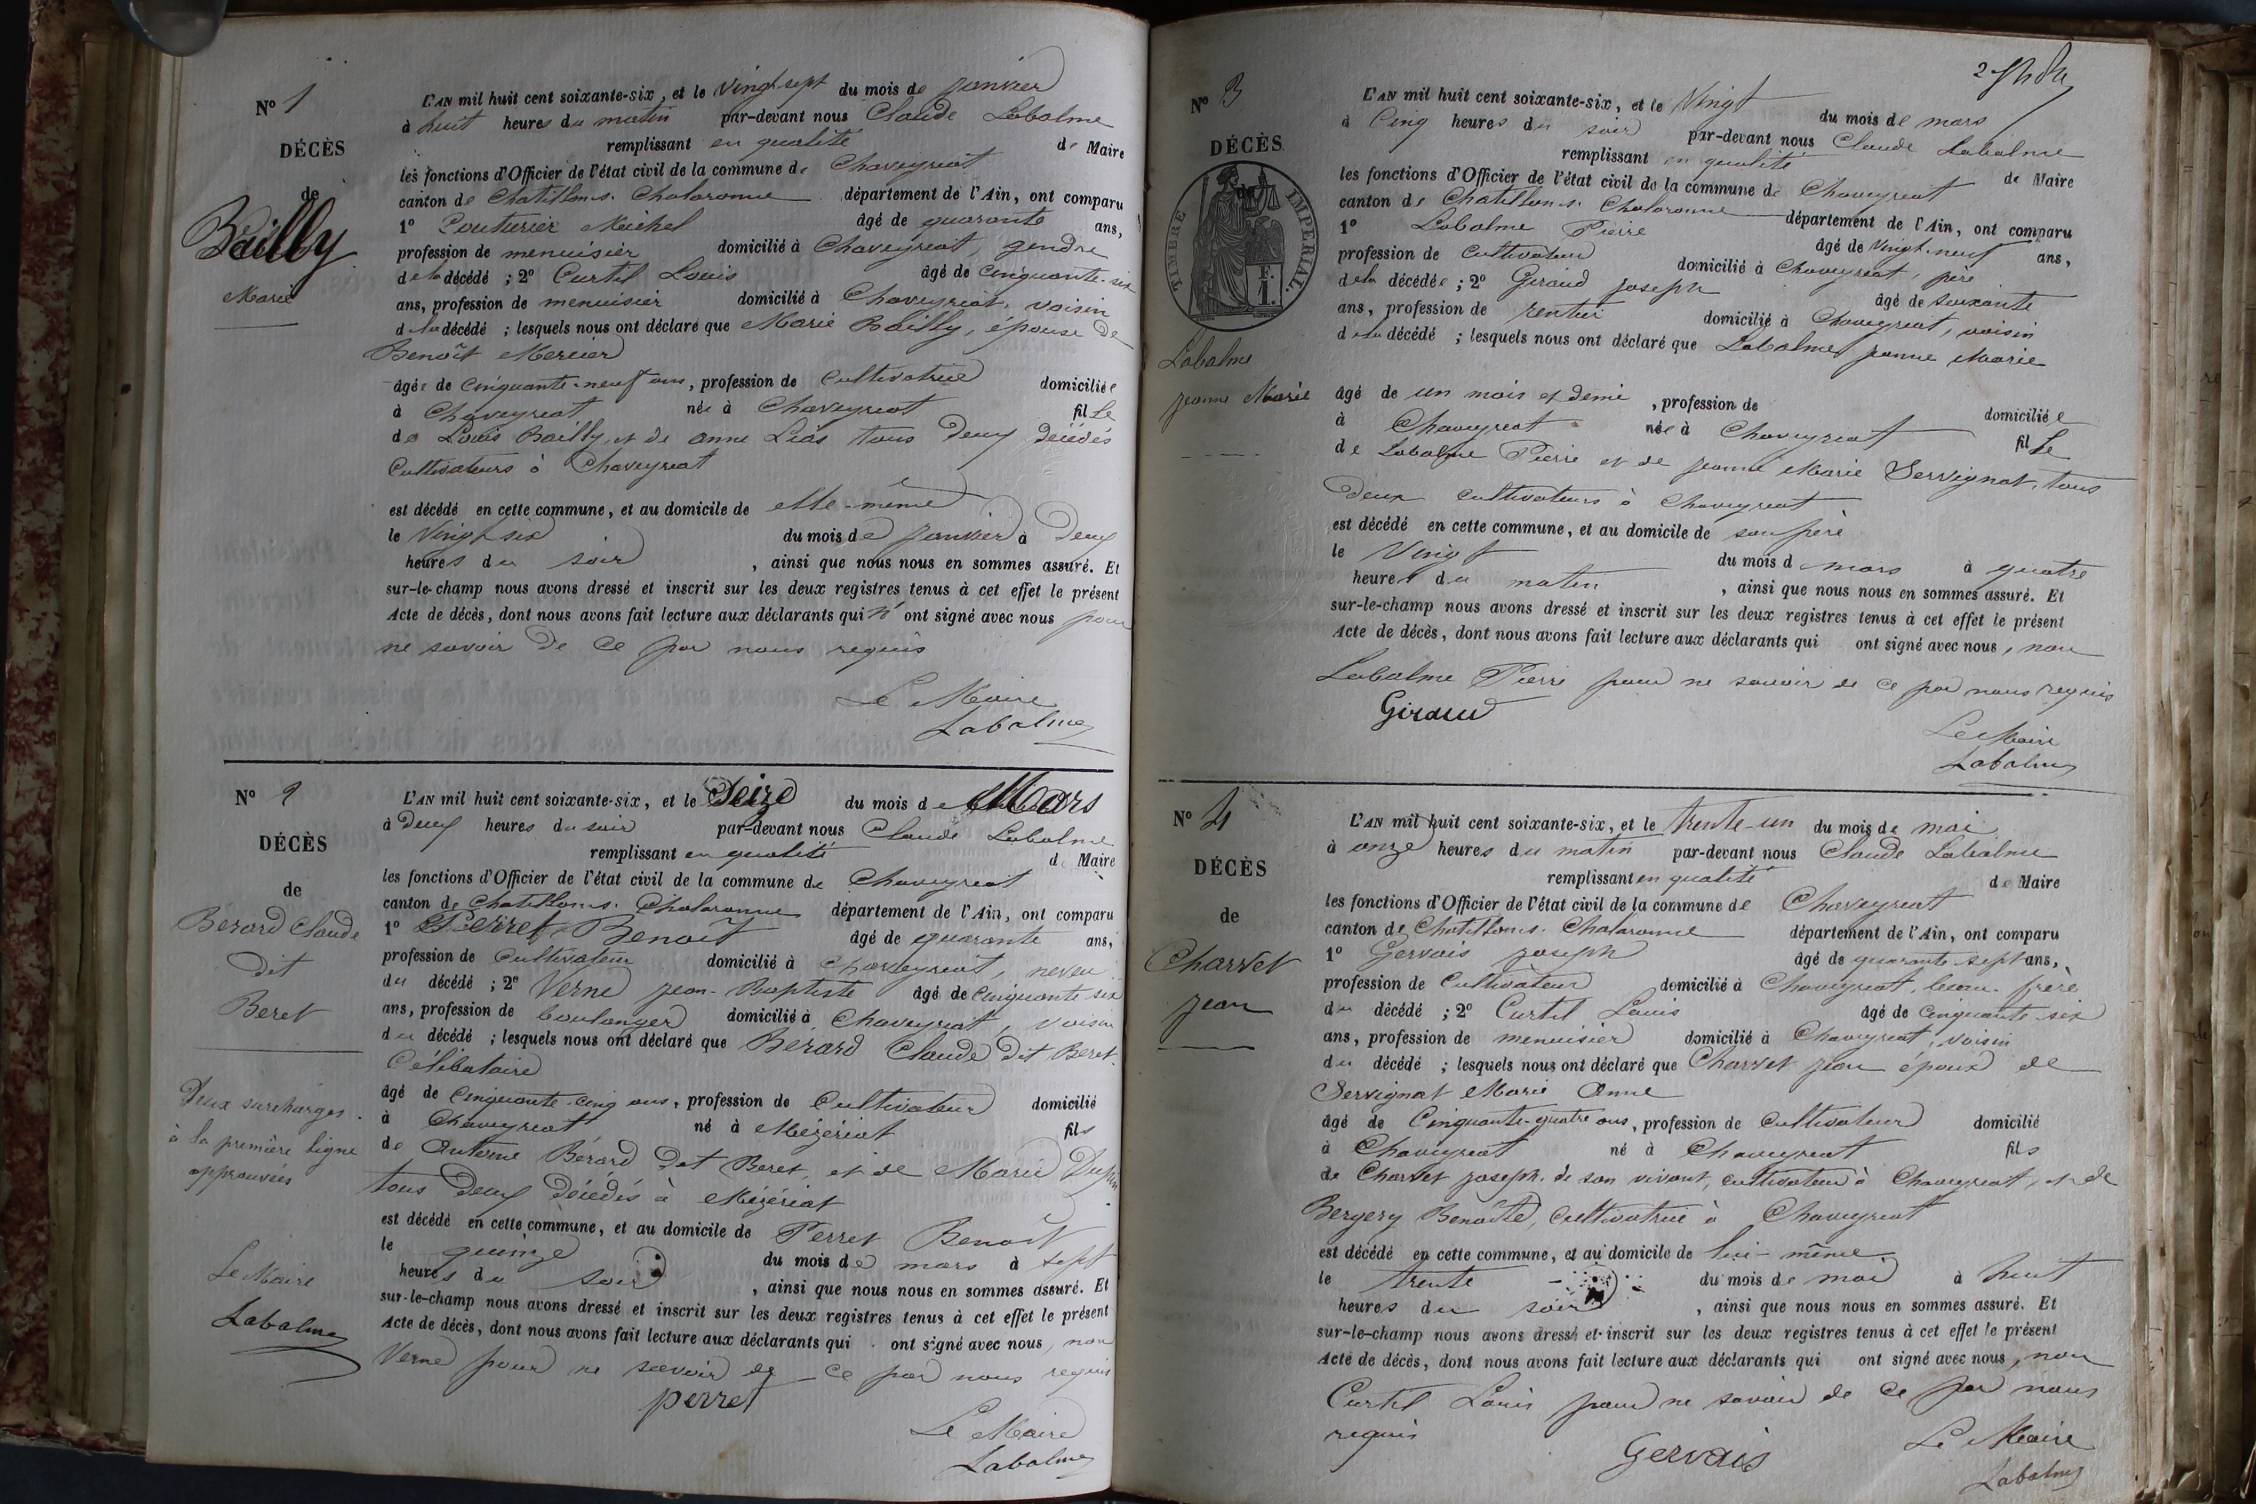 N° 1
DÉCÈS
de
Bailly
Marie
L'AN mil huit cent soixante-six, et le vingt sept du mois de janvier
à huit heures du matin par-devant nous Claude Labalme
remplissant en qualité de Maire
les fonctions d'Officier de l'état civil de la commune de Chaveyriat
canton de Chatillon s. Chalaronne département de l'Ain, ont comparu
1° Couturier Michel âgé de quarante ans,
profession de menuisier domicilié à Chaveyriat, gendre
de la décédé ; 2° Curtil Louis âgé de cinquante-six
ans, profession de menuisier domicilié à Chaveyriat, voisin
de la décédé ; lesquels nous ont déclaré que Marie Bailly, épouse de
Benoît Mercier
âgée de cinquante-neuf ans, profession de cultivatrice domiciliée
à Chaveyriat née à Chaveyriat fille
de Louis Bailly et de anne Liàs tous deux décédés
cultivateurs à Chaveyriat
est décédé en cette commune, et au domicile de elle-même
le vingt six du mois de janvier à deux
heures du soir, ainsi que nous nous en sommes assuré. Et
sur-le-champ nous avons dressé et inscrit sur les deux registres tenus à cet effet le présent
Acte de décès, dont nous avons fait lecture aux déclarants qui n'ont signé avec nous pour
ne savoir de ce par nous requis
Le Maire
Labalme
N° 2
DÉCÈS
de
Berard Claude
dit
Beret
Deux surcharges
à la première ligne
approuvées
Le Maire
Labalme
L'AN mil huit cent soixante-six, et le Seize du mois de Mars
à deux heures du soir par-devant nous Claude Labalme
remplissant en qualité de Maire
les fonctions d'Officier de l'état civil de la commune de Chaveyriat
canton de Chatillon s. Chalaronne département de l'Ain, ont comparu
1° Perret Benoit âgé de quarante ans,
profession de cultivateur domicilié à Chaveyriat, neveu
du décédé ; 2° Verne jean-Baptiste âgé de cinquante six
ans, profession de boulanger domicilié à Chaveyriat, voisin
du décédé ; lesquels nous ont déclaré que Bérard Claude dit Beret
Célibataire
âgé de cinquante-cinq ans, profession de cultivateur domicilié
à Chaveyriat né à Mézériat fils
de Antoine Bérard dit Beret, et de Marie
tous deux décédés à Mézériat
est décédé en cette commune, et au domicile de Perret Benoît
le quinze du mois de mars à sept
heures du soir, ainsi que nous nous en sommes assuré. Et
sur-le-champ nous avons dressé et inscrit sur les deux registres tenus à cet effet le présent
Acte de décès, dont nous avons fait lecture aux déclarants qui ont signé avec nous, non
Verne pour ne savoir de ce par nous requis
perret
Le Maire
Labalme
N° 3
DÉCÈS
de
TIMBRE IMPERIAL.
Labalme
jeanne Marie
L'AN mil huit cent soixante-six, et le Vingt du mois de mars
à Cinq heures du soir par-devant nous Claude Labalme
remplissant en qualité de Maire
les fonctions d'Officier de l'état civil de la commune de Chaveyriat
canton de Chatillon s. Chalaronne département de l'Ain, ont comparu
1° Labalme Pierre âgé de vingt-neuf ans,
profession de cultivateur domicilié à Chaveyriat, père
de la décédée ; 2° Giraud joseph âgé de soixante
ans, profession de rentier domicilié à Chaveyriat, voisin
de la décédé ; lesquels nous ont déclaré que Labalme jeanne Marie
âgé de un mois et demi, profession de domiciliée
à Chaveyriat née à Chaveyriat fille
de Labalme Pierre et de jeanne Marie Servignat, tous
deux cultivateurs à Chaveyriat
est décédé en cette commune, et au domicile de son père
le Vingt du mois d mars à quatre
heures du matin, ainsi que nous nous en sommes assuré. Et
sur-le-champ nous avons dressé et inscrit sur les deux registres tenus à cet effet le présent
Acte de décès, dont nous avons fait lecture aux déclarants qui ont signé avec nous, non
Labalme Pierre pour ne savoir de ce par nous requis
Giraud
Le Maire
Labalme
N° 4
DÉCÈS
de
Charvet
jean
L'AN mil huit cent soixante-six, et le trente-un du mois de mai
à onze heures du matin par-devant nous Claude Labalme
remplissant en qualité de Maire
les fonctions d'Officier de l'état civil de la commune de Chaveyriat
canton de Chatillon s. Chalaronne département de l'Ain, ont comparu
1° Gervais joseph âgé de quarante-sept ans,
profession de cultivateur domicilié à Chaveyriat, beau-frère
du décédé ; 2° Curtil Louis âgé de cinquante-six
ans, profession de menuisier domicilié à Chaveyriat, voisin
du décédé ; lesquels nous ont déclaré que Charvet jean époux de
Servignat Marie Anne
âgé de Cinquante-quatre ans, profession de cultivateur domicilié
à Chaveyriat né à Chaveyriat fils
de Charvet joseph de son vivant, cultivateur à Chaveyriat, et de
Bergery Benoite, cultivatrice à Chaveyriat
est décédé en cette commune, et au domicile de lui-même
le trente du mois de mai à huit
heures du soir, ainsi que nous nous en sommes assuré. Et
sur-le-champ nous avons dressé et inscrit sur les deux registres tenus à cet effet le présent
Acte de décès, dont nous avons fait lecture aux déclarants qui ont signé avec nous, non
Curtil Louis pour ne savoir de ce par nous
requis
Gervais
Le Maire
Labalme